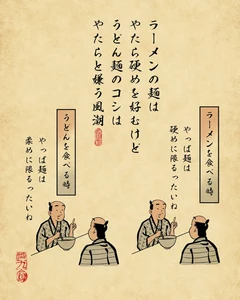 ラーメンの麺は
やたら硬めを好むけど
うどん麺のコシは
やたらと嫌う風潮
ラーメンを食べる時
やっぱ麺は
硬めに限るったいね
うどんを食べる時
やっぱ麺は
柔めに限るったいね